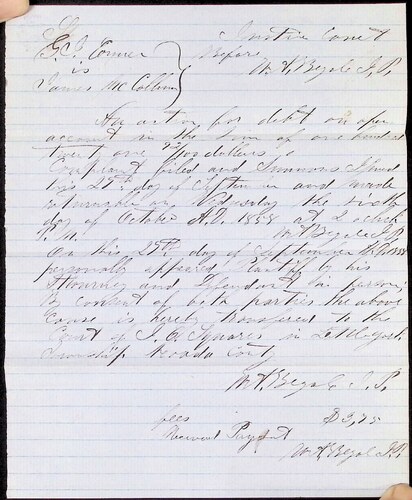 G. J. Tower Justice Court
vs Before
James McCollum W. A. Begole J. P.
An action for debt on open
account in the sum of one hundred
twenty one 92/100 dollars
Complaint filed and Summons Issued
this 25th day of September and made
returnable on Wedesday the sixth
day of October A.D. 1858 at 2 oclock
P. M. W A Begole J P
On this 25th day of September A D 1858
personally appeared Plantiff by his
Attorney and Defendant in person
By consent of both parties the above
Cause is hereby transfered to the
Court of J. A. Squares in Little York
Township Nevada Conty
W A Begole J. P.
fees $3,75
Received Payment
W A Begole J. P.